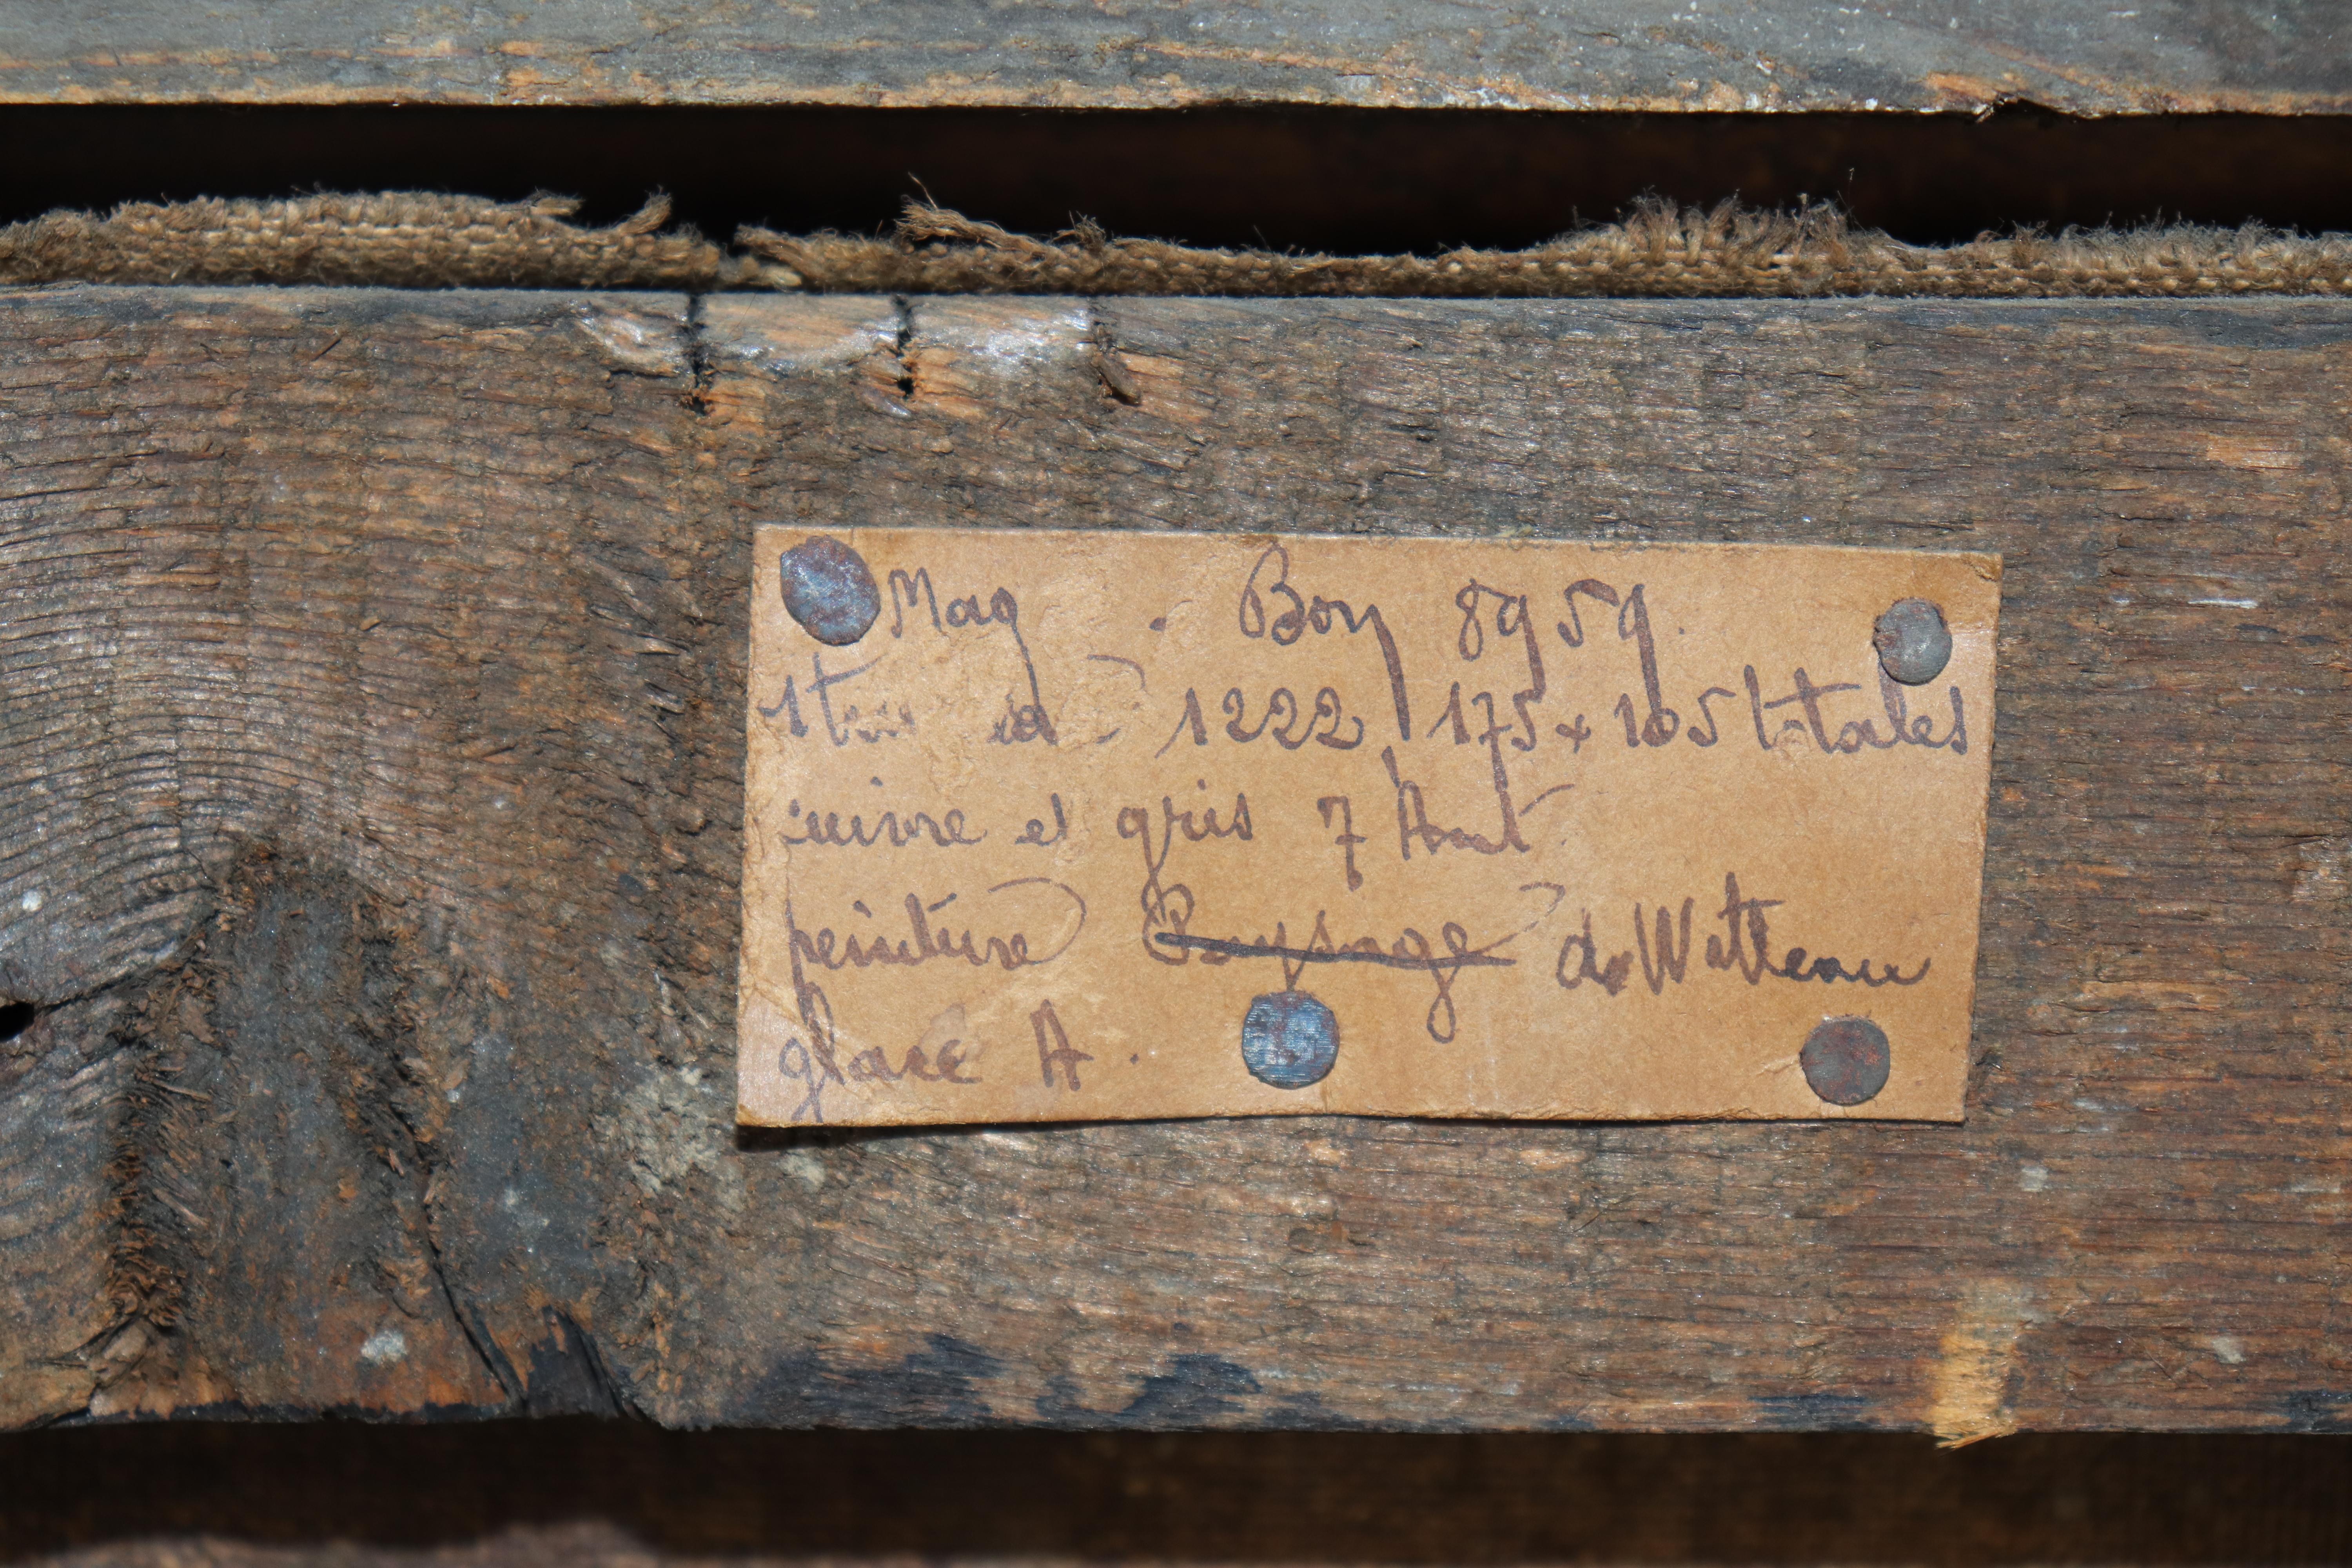 Mag . Bon 8959.
1222 175 x 105 totales
cuivre et gris 7
peinture Paysage de Watteau
glace A.